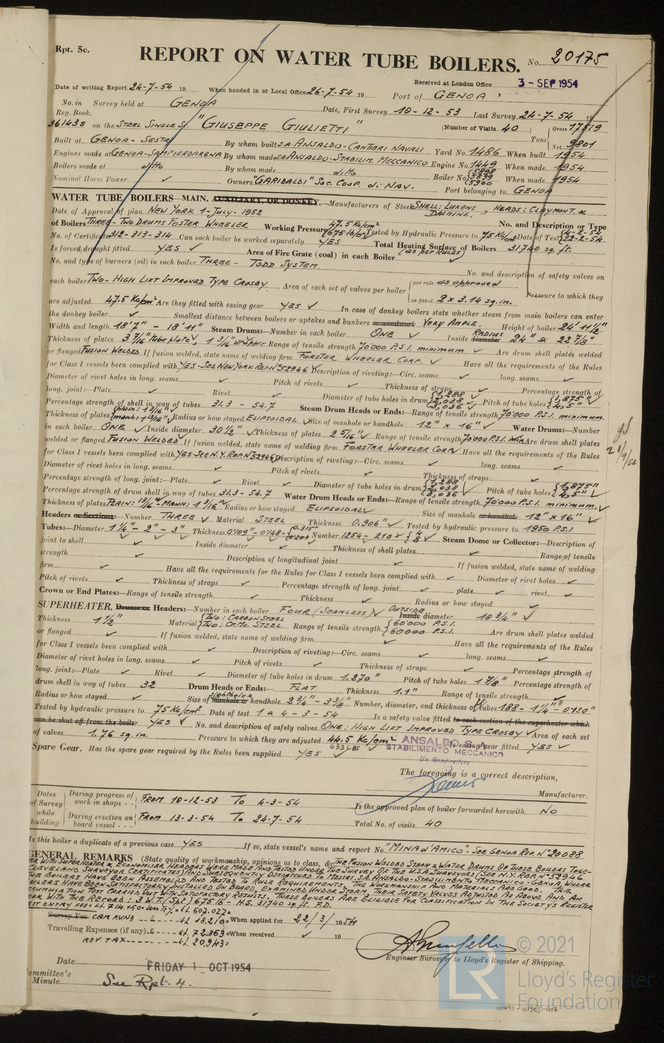 Rpt. 5c.
REPORT ON WATER TUBE BOILERS.
No. 20175
Received at London Office 3 - SEP 1954
Date of writing Report 24-7-54 19 When handed in at Local Office 26-7-54 19 Port of GENOA
No. in Survey held at GENOA Date, First Survey 10-12-53 Last Survey 24-7-54 19
Reg. Book.
361435 on the STEEL SINGLE S. "GIUSEPPE GIULIETTI" (Number of Visits 40) Gross 17519
Tons
Net 9801
Built at GENOA-SESTRI By whom built S.A. ANSALDO-CANTIERI NAVALI Yard No. 1486 When built 1954
Engines made at GENOA-SAMPIERDARENA By whom made S.A. ANSALDO-STABILIM. MECCANICO Engine No. 1449 When made 1954
Boilers made at ditto By whom made ditto Boiler No. When made 1954
Nominal Horse Power Owners "GARIBALDI" SOC. COOP. di NAV. Port belonging to GENOA
WATER TUBE BOILERS—MAIN, AUXILIARY, OR DONKEY.—Manufacturers of Steel SHELL: LUKENS
Date of Approval of plan NEW YORK 1-JULY-1952 No. and Description or Type
of Boilers THREE-TWO DRUMS FOSTER WHEELER Working Pressure 47.5 Kg/cm² Tested by Hydraulic Pressure to 75 Kg/cm² Date of Test
No. of Certificate 312-313-314 Can each boiler be worked separately YES Total Heating Surface of Boilers 31740 sq. ft.
Is forced draught fitted YES Area of Fire Grate (coal) in each Boiler (as per RULES)
No. and type of burners (oil) in each boiler THREE - TODD SYSTEM No. and description of safety valves on
each boiler TWO-HIGH LIFT IMPROVED TYPE CROSBY Area of each set of valves per boiler per rule as approved
as fitted 2 x 3.14 sq. in. Pressure to which they
are adjusted 47.5 Kg/cm² Are they fitted with easing gear YES In case of donkey boilers state whether steam from main boilers can enter
the donkey boiler Smallest distance between boilers or uptakes and bunkers or woodwork VERY AMPLE Height of boiler 24' 11½"
Width and length 18'7" - 18'11" Steam Drums:—Number in each boiler ONE Inside RADIUS 24" & 22⅞"
Thickness of plates Range of tensile strength 70000 P.S.I. minimum Are drum shell plates welded
or flanged FUSION WELDED If fusion welded, state name of welding firm FOSTER WHEELER CORP. Have all the requirements of the Rules
for Class I vessels been complied with YES-SEE NEW YORK REP. N° 52946 Description of riveting:—Circ. seams long. seams
Diameter of rivet holes in long. seams Pitch of rivets Thickness of straps Percentage strength of
long. joint:—Plate Rivet Diameter of tube holes in drum Pitch of tube holes
Percentage strength of shell in way of tubes 31.3 - 54.7 Steam Drum Heads or Ends:—Range of tensile strength 70000 P.S.I. minimum
Thickness of plates Radius or how stayed ELLIPSOIDAL Size of manhole or handhole 12" x 16" Water Drums:—Number
in each boiler ONE Inside diameter 30½" Thickness of plates 2 5/16" Range of tensile strength 70000 P.S.I. MIN. Are drum shell plates
welded or flanged FUSION WELDED If fusion welded, state name of welding firm FORSTER WHEELER CORP. Have all the requirements of the Rules
for Class I vessels been complied with YES-SEE N.Y. REP. N° 52946 Description of riveting:—Circ. seams long. seams
Diameter of rivet holes in long. seams Pitch of rivets Thickness of straps
Percentage strength of long. joint:—Plate Rivet Diameter of tube holes in drum Pitch of tube holes
Percentage strength of drum shell in way of tubes 31.3 - 54.7 Water Drum Heads or Ends:—Range of tensile strength 70000 P.S.I. minimum
Thickness of plates Radius or how stayed ELLIPSOIDAL Size of manhole or handhole 12" x 16"
Headers or Sections:—Number THREE Material STEEL Thickness 0.906" Tested by hydraulic pressure to 1950 P.S.I.
Tubes:—Diameter 1¼" - 2" - 3" Thickness Number Steam Dome or Collector:—Description of
joint to shell Inside diameter Thickness of shell plates Range of tensile
strength Description of longitudinal joint If fusion welded, state name of welding
firm Have all the requirements of the Rules for Class I vessels been complied with Diameter of rivet holes
Pitch of rivets Thickness of straps Percentage strength of long. joint plate rivet
Crown or End Plates:—Range of tensile strength Thickness Radius or how stayed
SUPERHEATER. Drums or Headers:—Number in each boiler FOUR (SEAMLESS) Inside OUTSIDE diameter 10¾"
Thickness 1½" Material TWO: CARBON STEEL TWO: CR.MO. STEEL Range of tensile strength 60000 P.S.I. 60000 P.S.I. Are drum shell plates welded
or flanged If fusion welded, state name of welding firm Have all the requirements of the Rules
for Class I vessels been complied with Description of riveting:—Circ. seams long. seams
Diameter of rivet holes in long. seams Pitch of rivets Thickness of straps Percentage strength of
long. joint:—Plate Rivet Diameter of tube holes in drum 1.270" Pitch of tube holes 1⅞" Percentage strength of
drum shell in way of tubes 32 Drum Heads or Ends:— FLAT Thickness 1.1" Range of tensile strength
Radius or how stayed Size of manhole or handhole Number, diameter, and thickness of tubes 188 - 1¼" - 0.120"
Tested by hydraulic pressure to 75 Kg/cm² Date of test 1 & 4 - 3 - 54 Is a safety valve fitted to each section of the superheater which
can be shut off from the boiler YES No. and description of safety valves ONE: HIGH LIFT IMPROVED TYPE CROSBY Area of each set
of valves 1.76 sq. in. Pressure to which they are adjusted 44.5 Kg/cm² Is easing gear fitted YES
Spare Gear. Has the spare gear required by the Rules been supplied YES
ANSALDO S.A.
STABILIMENTO MECCANICO
The foregoing is a correct description,
Manufacturer.
Dates of Survey while building
During progress of work in shops - - FROM 10-12-53 TO 4-3-54
During erection on board vessel - - - FROM 13-3-54 TO 24-7-54
Is the approved plan of boiler forwarded herewith NO
Total No. of visits 40
Is this boiler a duplicate of a previous case YES If so, state vessel's name and report No. "MINA d'AMICO" - SEE GENOA REP. N° 20088
GENERAL REMARKS (State quality of workmanship, opinions as to class, &c. THE FUSION WELDED STEAM & WATER DRUMS OF THESE BOILERS TOGE-
THER WITH SUPERHEATER & ECONOMISER HEADERS WERE MADE AND TESTED UNDER THE SURVEY OF THE U.S.A. SURVEYORS (SEE N.Y. REP. N° 52946
CLEVELAND SURVEYOR CERTIFICATES) AND SUBSEQUENTLY DELIVERED TO MESSRS. S.A. ANSALDO-STABILIMENTO MECCANICO-GENOA, WHERE
THE BOILERS HAVE BEEN ASSEMBLED AND TESTED TO RULE REQUIREMENTS. THE WORKMANSHIP AND MATERIALS ARE GOOD. THE
BOILERS HAVE BEEN SATISFACTORILY INSTALLED ON BOARD, EXAMINED UNDER STEAM, THEIR SAFETY VALVES ADJUSTED AS ABOVE AND AN
ACCUMULATION TEST CARRIED OUT WITH SATISFACTORY RESULTS. THESE BOILERS ARE ELIGIBLE FOR CLASSIFICATION IN THE SOCIETY'S REGISTER
BOOK WITH THE RECORD: 3 W.T. (Spt) 675 lb - H.S. 31740 sq. ft. F.D.
Survey Fee CAR RUNS £ 18,210 When applied for 22/3/ 1954
Travelling Expenses (if any) £ When received 19
REV. TAX £ 20,943
Engineer Surveyor to Lloyd's Register of Shipping.
Date FRIDAY 1 OCT 1954
Committee's Minute See Rpt. 4.
© 2021
LR
Lloyd's Register
Foundation